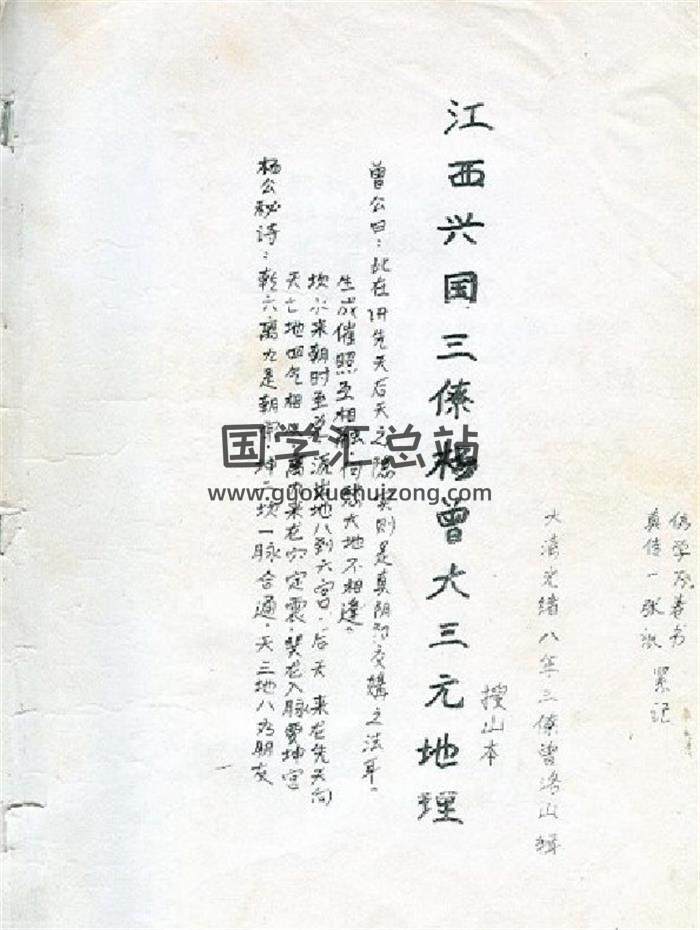 学卷
真传一张纸 记
大清光绪八年三僚曾洛山辑
山本
江西兴国三僚杨曾大三元地理
曾公曰：此在讲先天后天之则是真阴阳交媾之法耳。
生成催照互相何愁大地不相逢。
坎水来朝时至流地八到六宫，后天来龙先天向
天七地四气相离来龙穴定震，巽龙入脉要坤宫
杨公秘诗：乾六离九是朝坤二坎一脉合通，天三地八为朋友
国学汇总站
www.guoxuehuizong.com